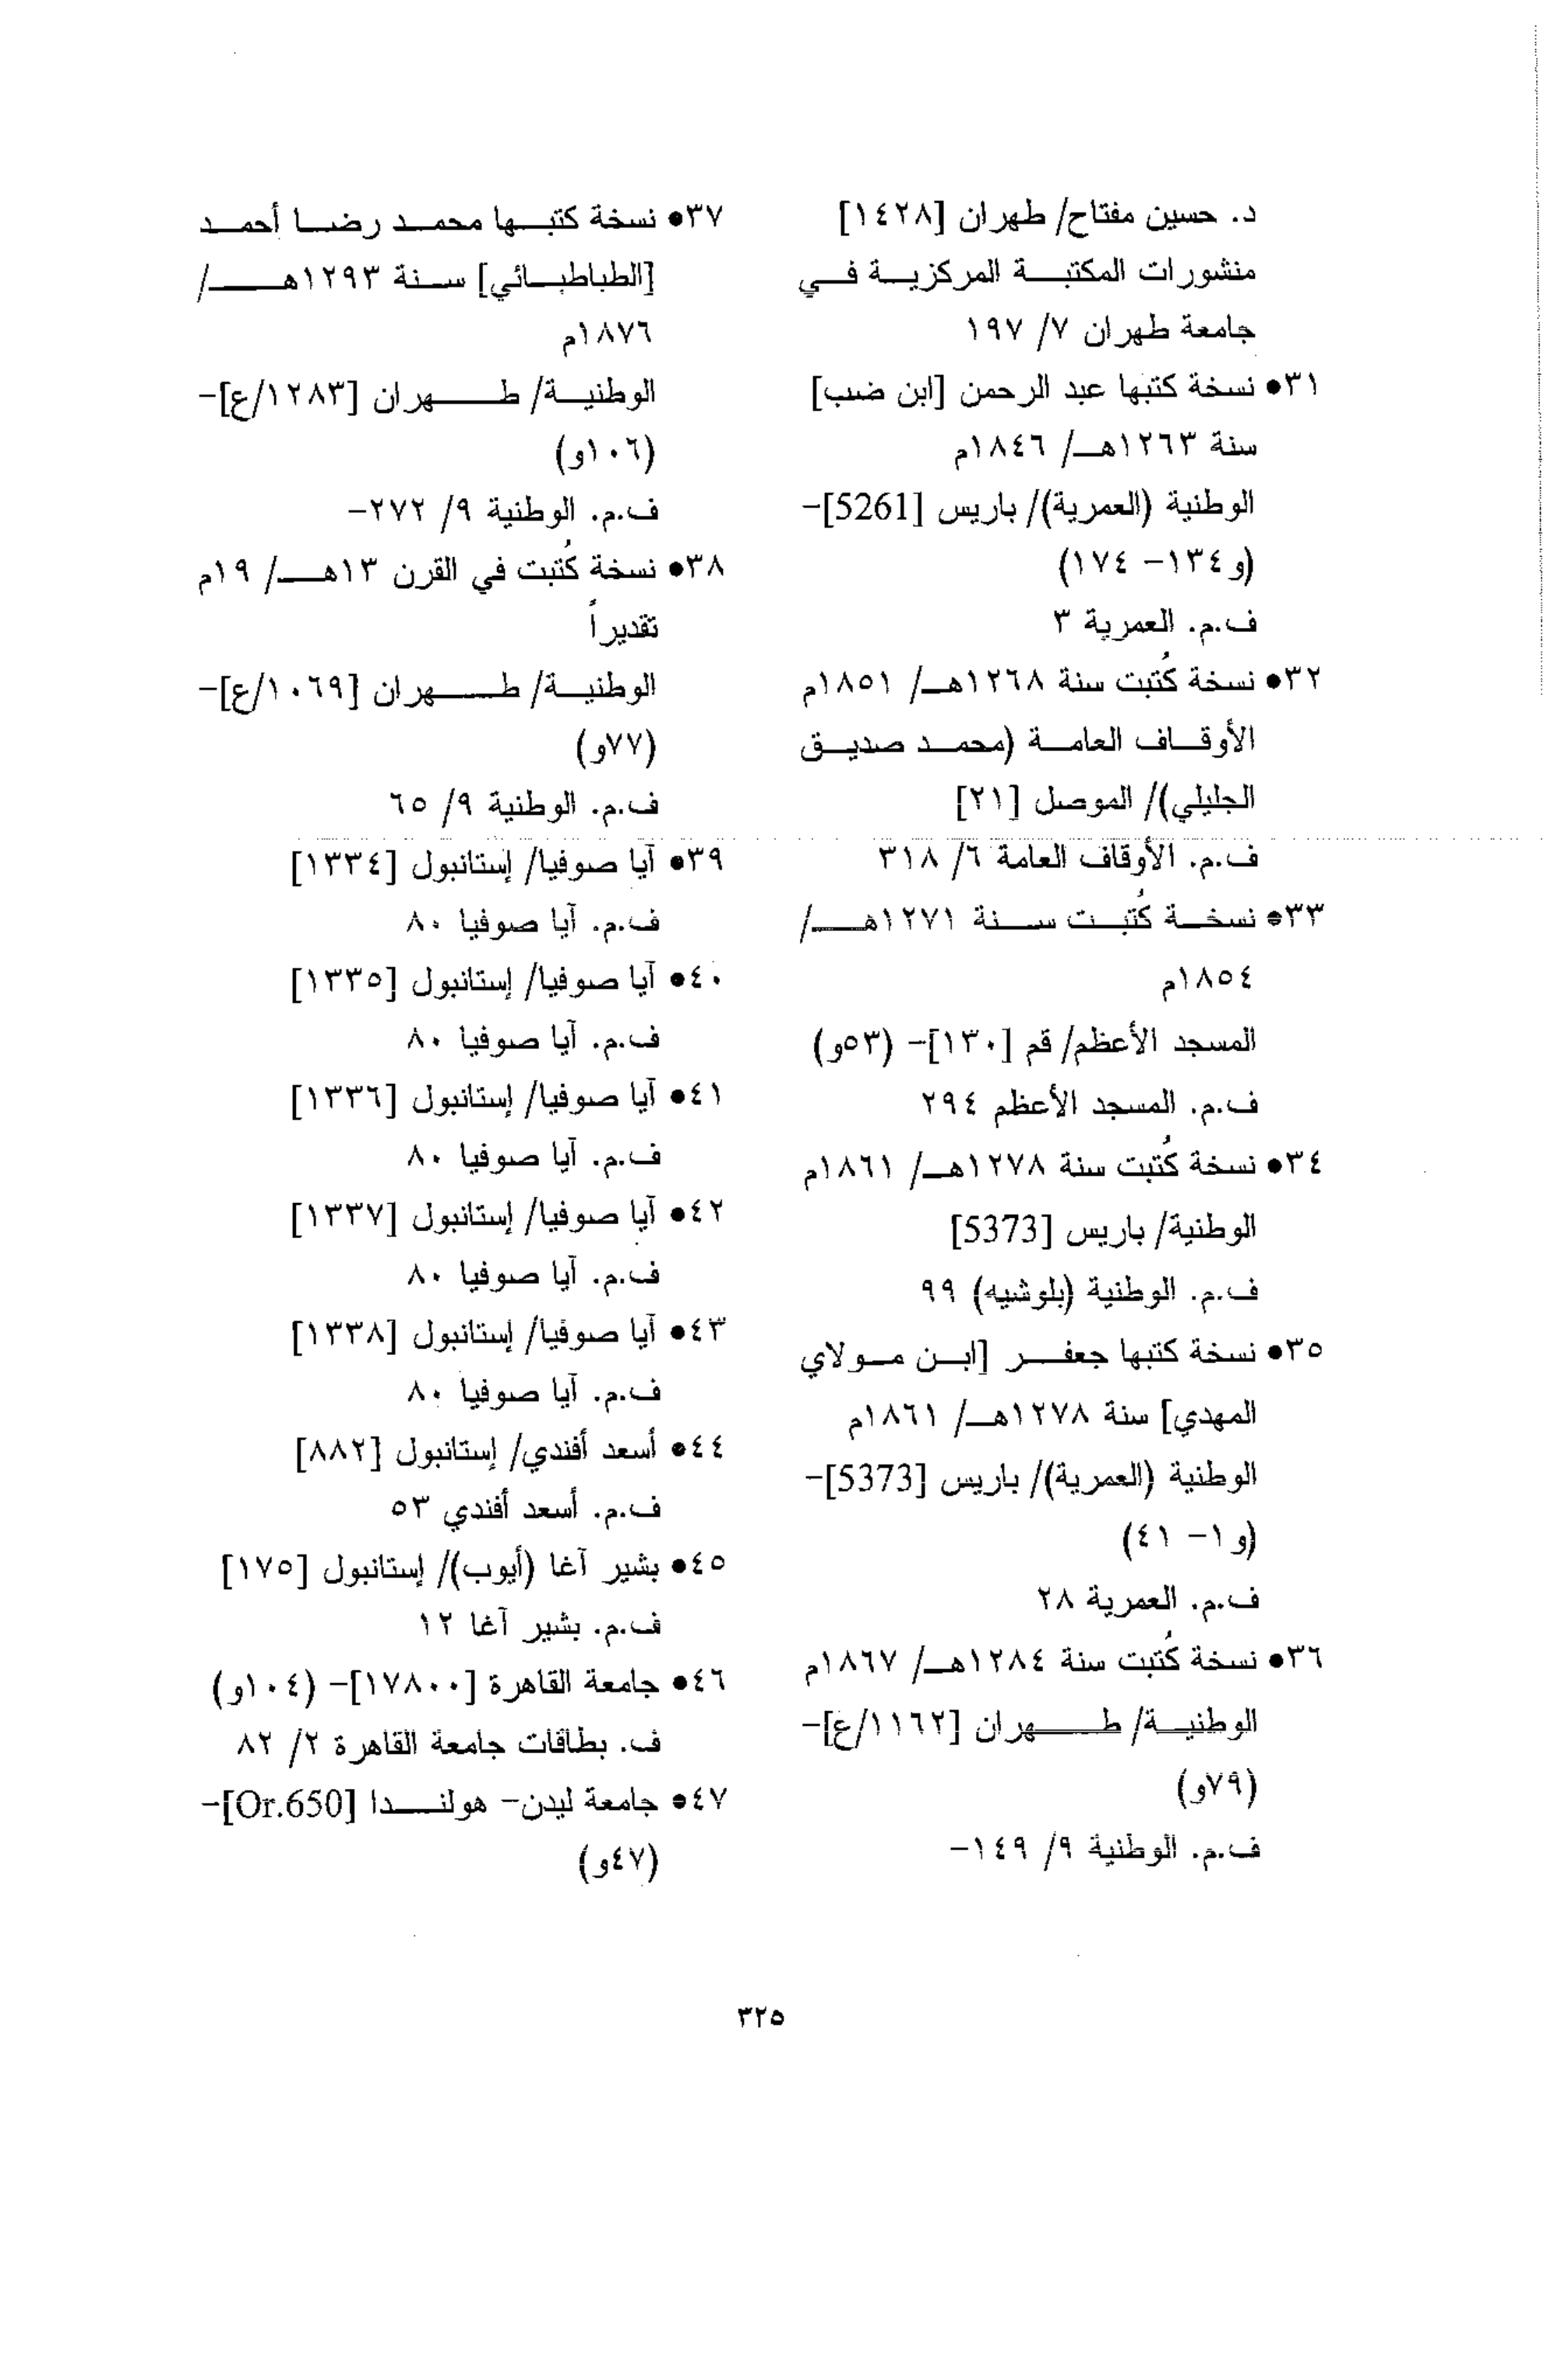 د. حسين مفتاح/ طهران [١٤٢٨]
منشورات المكتبة المركزية في
جامعة طهران ٧/ ١٩٧
٣١• نسخة كتبها عبد الرحمن [ابن ضب]
سنة ١٢٦٣هـ/ ١٨٤٦م
الوطنية (العمرية)/ باريس [5261]-
(و١٣٤- ١٧٤)
ف.م. العمرية ٣
٣٢• نسخة كُتبت سنة ١٢٦٨هـ/ ١٨٥١م
الأوقاف العامة (محمد صديق
الجليلي)/ الموصل [٢١]
ف.م. الأوقاف العامة ٦/ ٣١٨
٣٣• نسخة كُتبت سنة ١٢٧١هـ/
١٨٥٤م
المسجد الأعظم/ قم [١٣٠]- (٥٣و)
ف.م. المسجد الأعظم ٢٩٤
٣٤• نسخة كُتبت سنة ١٢٧٨هـ/ ١٨٦١م
الوطنية/ باريس [5373]
ف.م. الوطنية (بلوشيه) ٩٩
٣٥• نسخة كتبها جعفر [ابن مولاي
المهدي] سنة ١٢٧٨هـ/ ١٨٦١م
الوطنية (العمرية)/ باريس [5373]-
(و١- ٤١)
ف.م. العمرية ٢٨
٣٦• نسخة كُتبت سنة ١٢٨٤هـ/ ١٨٦٧م
الوطنية/ طهران [١١٦٢/ع]-
(٧٩و)
ف.م. الوطنية ٩/ ١٤٩-
٣٧• نسخة كتبها محمد رضا أحمد
[الطباطبائي] سنة ١٢٩٣هـ/
١٨٧٦م
الوطنية/ طهران [١٢٨٣/ع]-
(١٠٦و)
ف.م. الوطنية ٩/ ٢٧٢-
٣٨• نسخة كُتبت في القرن ١٣هـ/ ١٩م
تقديراً
الوطنية/ طهران [١٠٦٩/ع]-
(٧٧و)
ف.م. الوطنية ٩/ ٦٥
٣٩• آيا صوفيا/ إستانبول [١٣٣٤]
ف.م. آيا صوفيا ٨٠
٤٠• آيا صوفيا/ إستانبول [١٣٣٥]
ف.م. آيا صوفيا ٨٠
٤١• آيا صوفيا/ إستانبول [١٣٣٦]
ف.م. آيا صوفيا ٨٠
٤٢• آيا صوفيا/ إستانبول [١٣٣٧]
ف.م. آيا صوفيا ٨٠
٤٣• آيا صوفيا/ إستانبول [١٣٣٨]
ف.م. آيا صوفيا ٨٠
٤٤• أسعد أفندي/ إستانبول [٨٨٢]
ف.م. أسعد أفندي ٥٣
٤٥• بشير آغا (أيوب)/ إستانبول [١٧٥]
ف.م. بشير آغا ١٢
٤٦• جامعة القاهرة [١٧٨٠٠]- (١٠٤و)
ف. بطاقات جامعة القاهرة ٢/ ٨٢
٤٧• جامعة ليدن- هولندا [Or.650]-
(٤٧و)
٣٢٥